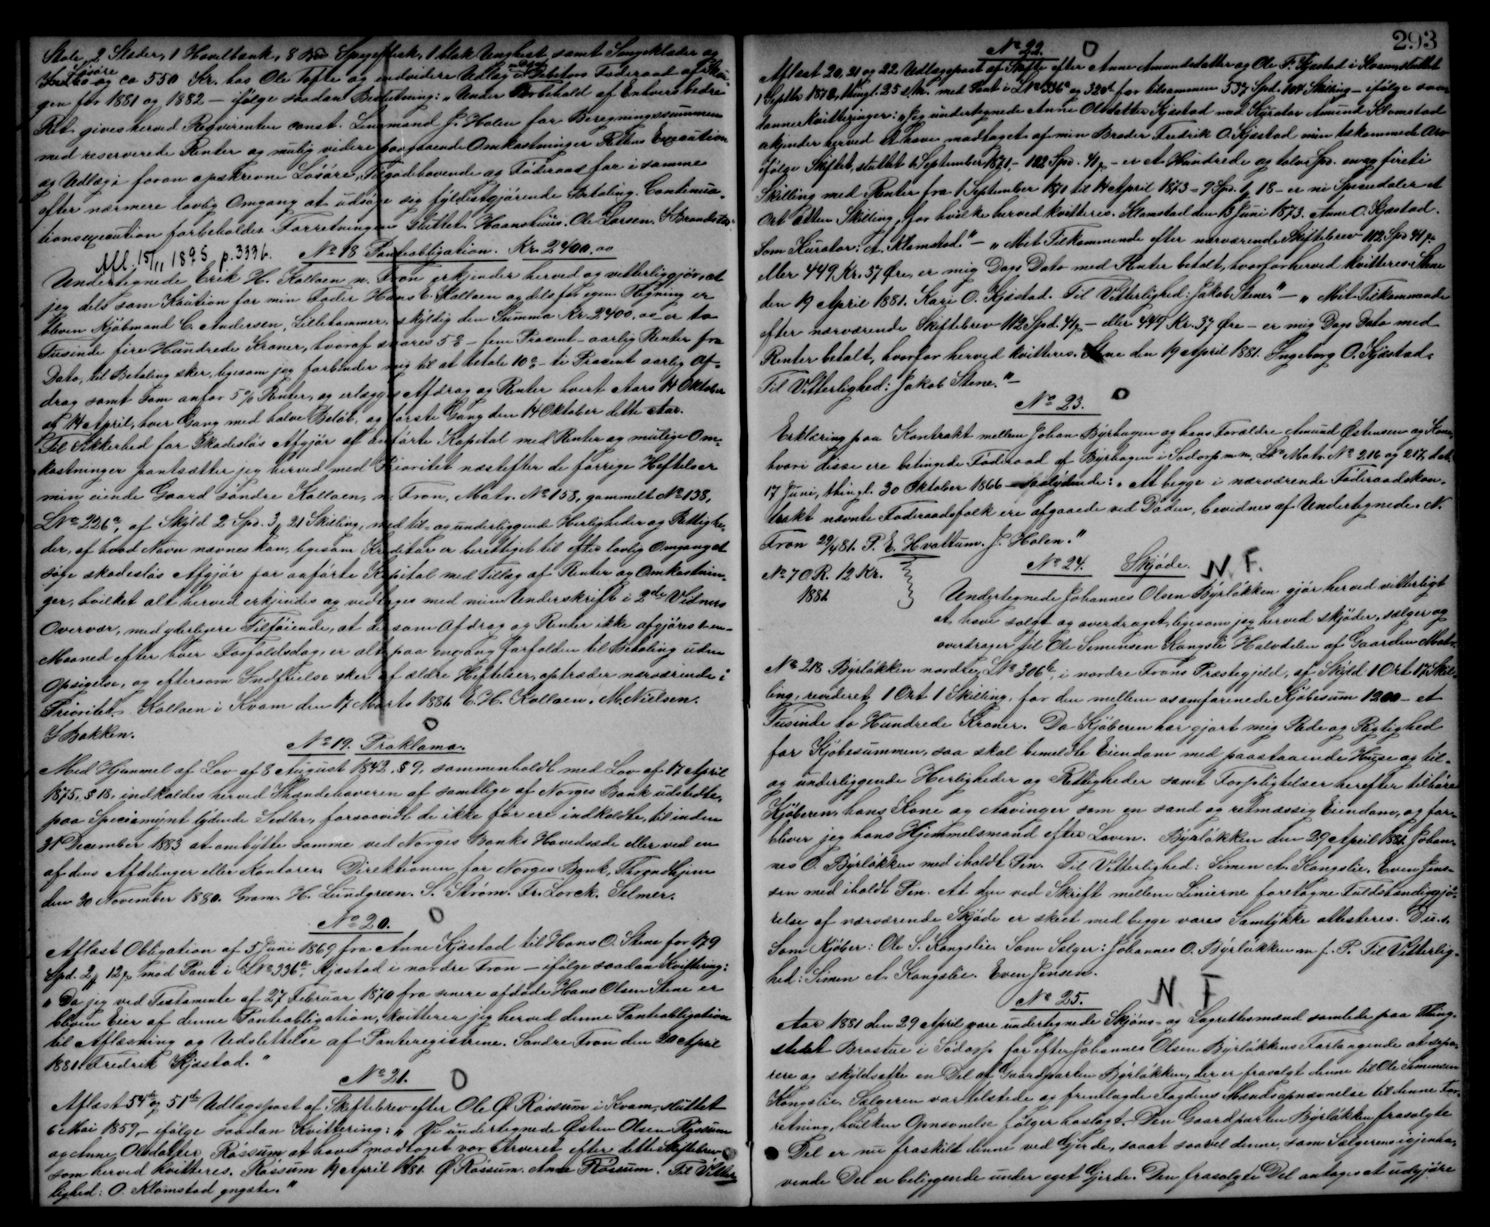 Stole, 2 Slæder, 1 Høvelbænk, 8 Bud Spegeflesk, 1 blak Unghest samt Sengeklæder og
Indbo og ca 550 Kr. hos Ole Tofte og endvidere Udlæg i Føderaad af
Løsøre
gen for 1881 og 1882 – ifølge saadan Beslutning: "Under Forbehold af Enhvers bedre
Ret gives herved Reqvirenten const. Lensmand J. Holen for Beregningssummen
med reserverede Renter og mulig videre paagaaende Omkostninger Rettens Execution
og Udlæg i foran opskrevne Løsøre, Tilgodehavende og Føderaad for i samme
efter nærmere lovlig Omgang at udsøge sig fyldestgjørende Betaling. Continua-
tionsexecution forbeholdes. Forretningen sluttet. Haanshuus. Ole Larsen. S. Brandstad.
Afl. 15/11 1895 p. 3396.
No 18 Panteobligation. Kr. 2400.00
Undertegnede Erik H. Kolloen n. Fron erkjender herved og vitterliggjør, at
jeg dels som Kaution for min Fader Hans E. Kolloen og dels for egen Regning er
bleven Kjøbmand C. Andersen, Lillehammer, skyldig den Summa Kr. 2400,00 er to
Tusinde fire Hundrede Kroner, hvoraf svares 5% – fem Procent – aarlig Renter fra
Dato, til Betaling sker, ligesom jeg forbinder mig til at betale 10% – ti Procent aarlig Af-
drag samt som anført 5% Renter, og erlægges Afdrag og Renter hvert Aars 14 Oktober
og 14 April, hver Gang med halve Beløb, og første Gang den 14 Oktober dette Aar.
Til Sikkerhed for skadesløs Afgjør af anførte Kapital med Renter og mulige Om-
kostninger pantsætter jeg herved med Prioritet næstefter de forrige Heftelser
min eiende Gaard søndre Kolloen, n. Fron, Matr. No 158, gammelt No 138,
LNo 226a, af Skyld 2 Spd. 3 ₰ 21 Skilling, med til- og underliggende Herligheder og Rettighe-
der, af hvad Navn nævnes kan, ligesom Kreditor er berettiget til efter lovlig Omgang at
søge skadesløs Afgjør for anførte Kapital med Tillæg af Renter og Omkostnin-
ger, hvilket alt herved erkjendes og vedtages med min Underskrift i 2de Vidners
Overvær, med yderligere Tilføiende, at de som Afdrag og Renter ikke afgjøres 1 en
Maaned efter hver Forfaldsdag, er alt paa engang forfalden til Betaling uden
Opsigelse, og eftersom Indfrielse sker af ældre Heftelser, optræder nærværende i
Prioritet. Kolloen i Kvam den 17 Marts 1881. E. H. Kolloen. M. Nielsen.
S. Bakken.
No 19. Proklama.
Med Hjemmel af Lov af 8 August 1842 § 9, sammenholdt med Lov af 17 April
1875, § 18, indkaldes herved Ihændehaveren af samtlige af Norges Bank udstedte,
paa Speciemynt lydende Sedler, forsaavidt de ikke før ere indkaldte, til inden
31 December 1883 at ombytte samme ved Norges Banks Hovedsæde eller ved en
af dens Afdelinger eller Kontorer. Direktionen for Norges Bank, Throndhjem
den 20 November 1880. Gram. H. Lundgreen. S. Strøm. Fr. Lorck. Selmer.
No 20.
Aflæst Obligation af 5 Juni 1869 fra Anne Kjøstad til Hans O. Stene for 179
Spd. 2 ₰ 12 p. mod Pant i LNo 336a Kjøstad i nordre Fron – ifølge saadan Kvittering:
"Da jeg ved Testamente af 27 Februar 1870 fra senere afdøde Hans Olsen Stene er
bleven Eier af denne Panteobligation, kvitterer jeg herved denne Panteobligation
til Aflæsning og Udslettelse af Panteregistrene. Søndre Fron den 20 April
1881. Fredrik Kjøstad."
No 21.
Aflæst 54de og 51de Udlægspost af Skiftebrev efter Ole Ø. Røssum i Kvam, sluttet
6 Mai 1859, – ifølge saadan Kvittering: "Vi undertegnede Østen Olsen Røssum
og Anne Olsdatter Røssum at have modtaget vor Arveret efter dette Skiftebrev
som herved kvitteres. Røssum 19 April 1881. Ø. Røssum. Anne Røssum. Til Vitter-
lighed: O. Klomstad gngstr."
293
No 22.
Aflæst 20, 21 og 22 Udlægspost af Skifte efter Anne Amundsdatter og Ole F. Kjøstad i Kvam, sluttet
1 Septbr 1870, thingl. 25 s. M. med Pant i LNo 336a og 320d for tilsammen 537 Spd. 104 Skilling – ifølge saa-
danne Kvitteringer: "Jeg undertegnede Anne Olsdatter Kjøstad med Kurator Amund Klomstad
erkjender herved at have modtaget af min Broder Fredrik O. Kjøstad min tilkommende Arv
ifølge Skiftet, sluttet 1 September 1871, – 112 Spd. 41 p. – er et Hundrede og tolv Spd. en og firti
Skilling med Renter fra 1 September 1870 til 14 April 1873 – 9 Spd. 1 ₰ 18 – er ni Speciedaler et
Ort atten Skilling, for hvilke herved kvitteres. Klomstad den 15 Juni 1873. Anne O. Kjøstad.
Som Kurator: A. Klomstad." – "Mit Tilkommende efter nærværende Skiftebrev 112 Spd 41 p.
eller 449 Kr. 37 Øre, er mig Dags Dato med Renter betalt, hvorfor herved kvitteres. Stene
den 19 April 1881. Kari O. Kjøstad. Til Vitterlighed: Jakob Stene." – "Mit Tilkommende
efter nærværende Skiftebrev 112 Spd. 41 p. – eller 449 Kr. 37 Øre – er mig Dags Dato med
Renter betalt, hvorfor herved kvitteres. Stene den 19 April 1881. Ingeborg O. Kjøstad.
Til Vitterlighed: Jakob Stene." –
No 23.
Erklæring paa Kontrakt mellem Johan Byrhagen og hans Forældre Amund Østensen og Kone,
hvori disse ere betingede Føderaad af Byrhagen i Sødorp m.m. LNo Matr. No 216 og 217, dat.
17 Juni, thingl. 30 Oktober 1866 – saalydende: "At begge i nærværende Føderaadskon-
trakt nævnte Føderaadsfolk ere afgaaede ved Døden, bevidnes af Undertegnede. N.
Fron 29/4 81. P. E. Hvattum. J. Holen."
No 24. Skjøde. N. F.
No 70 R. 12 Kr.
1881
Undertegnede Johannes Olsen Byrløkken gjør herved vitterligt
at have solgt og overdraget, ligesom jeg herved skjøder, sælger og
overdrager til Ole Simensen Kongslie Halvdelen af Gaarden Matr.
No 218 Byrløkken nordre, LNo 306b, i nordre Frons Præstegjeld, af Skyld 1 Ort 17 Skil-
ling, revideret 1 Ort 1 Skilling, for den mellem os omforenede Kjøbesum 1200 – et
Tusinde to Hundrede Kroner. Da Kjøberen har gjort mig Rede og Rigtighed
for Kjøbesummen, saa skal bemeldte Eiendom med paastaaende Huse og til-
og underliggende Herligheder og Rettigheder samt Forpligtelser herefter tilhøre
Kjøberen, hans Kone og Arvinger som en sand og retmæssig Eiendom, og for-
bliver jeg hans Hjemmelsmand efter Loven. Byrløkken den 29 April 1881. Johan-
nes O. Byrløkken med iholdt Pen. Til Vitterlighed: Simen A. Kongslie. Even Jens-
sen med iholdt Pen. At den ved Skrift mellem Linierne foretagne Fuldstændiggjø-
relse af nærværende Skjøde er skeet med begge vores Samtykke attesteres. D.u.s.
Som Kjøber: Ole S. Kongslie. Som Sælger: Johannes O. Byrløkken m. f. P. Til Vitterlig-
hed: Simen A. Kongslie. Even Jensen.
No 25. N. F
Aar 1881 den 29 April vare undertegnede Skjøns- og Lagrettesmænd samlede paa Thing-
stedet Brostue i Sødorp for efter Johannes Olsen Byrløkkens Forlangende at sepa-
rere og skyldsætte en Del af Gaardparten Byrløkken, der er frasolgt denne til Ole Simensen
Kongslie. Sælgeren var tilstede og fremlagde Fogdens Mændsopnævnelse til denne For-
retning, hvilken Opnævnelse følger hoslagt. Den Gaardparten Byrløkken frasolgte
Del er nu fraskilt denne ved Gjerde, saaat saavel denne, som Sælgerens igjenha-
vende Del er beliggende under eget Gjerde. Den frasolgte Del antages at udgjøre